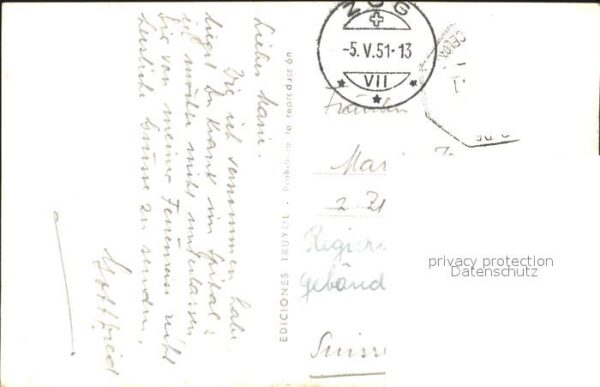 Liebe Marie.
Wie ich vernommen habe,
liegst Du krank im Spital.
ich möchte nicht unterlassen
Dir von meiner Ferienreise nicht
herzliche Grüsse zu senden.
Gottfried
EDICIONES TRUYOL - Prohibida la reproducción
ZUG
-5.V.51-13
VII
Fräulein
Mari
Regier
Gebäud
Suisse
privacy protection
Datenschutz